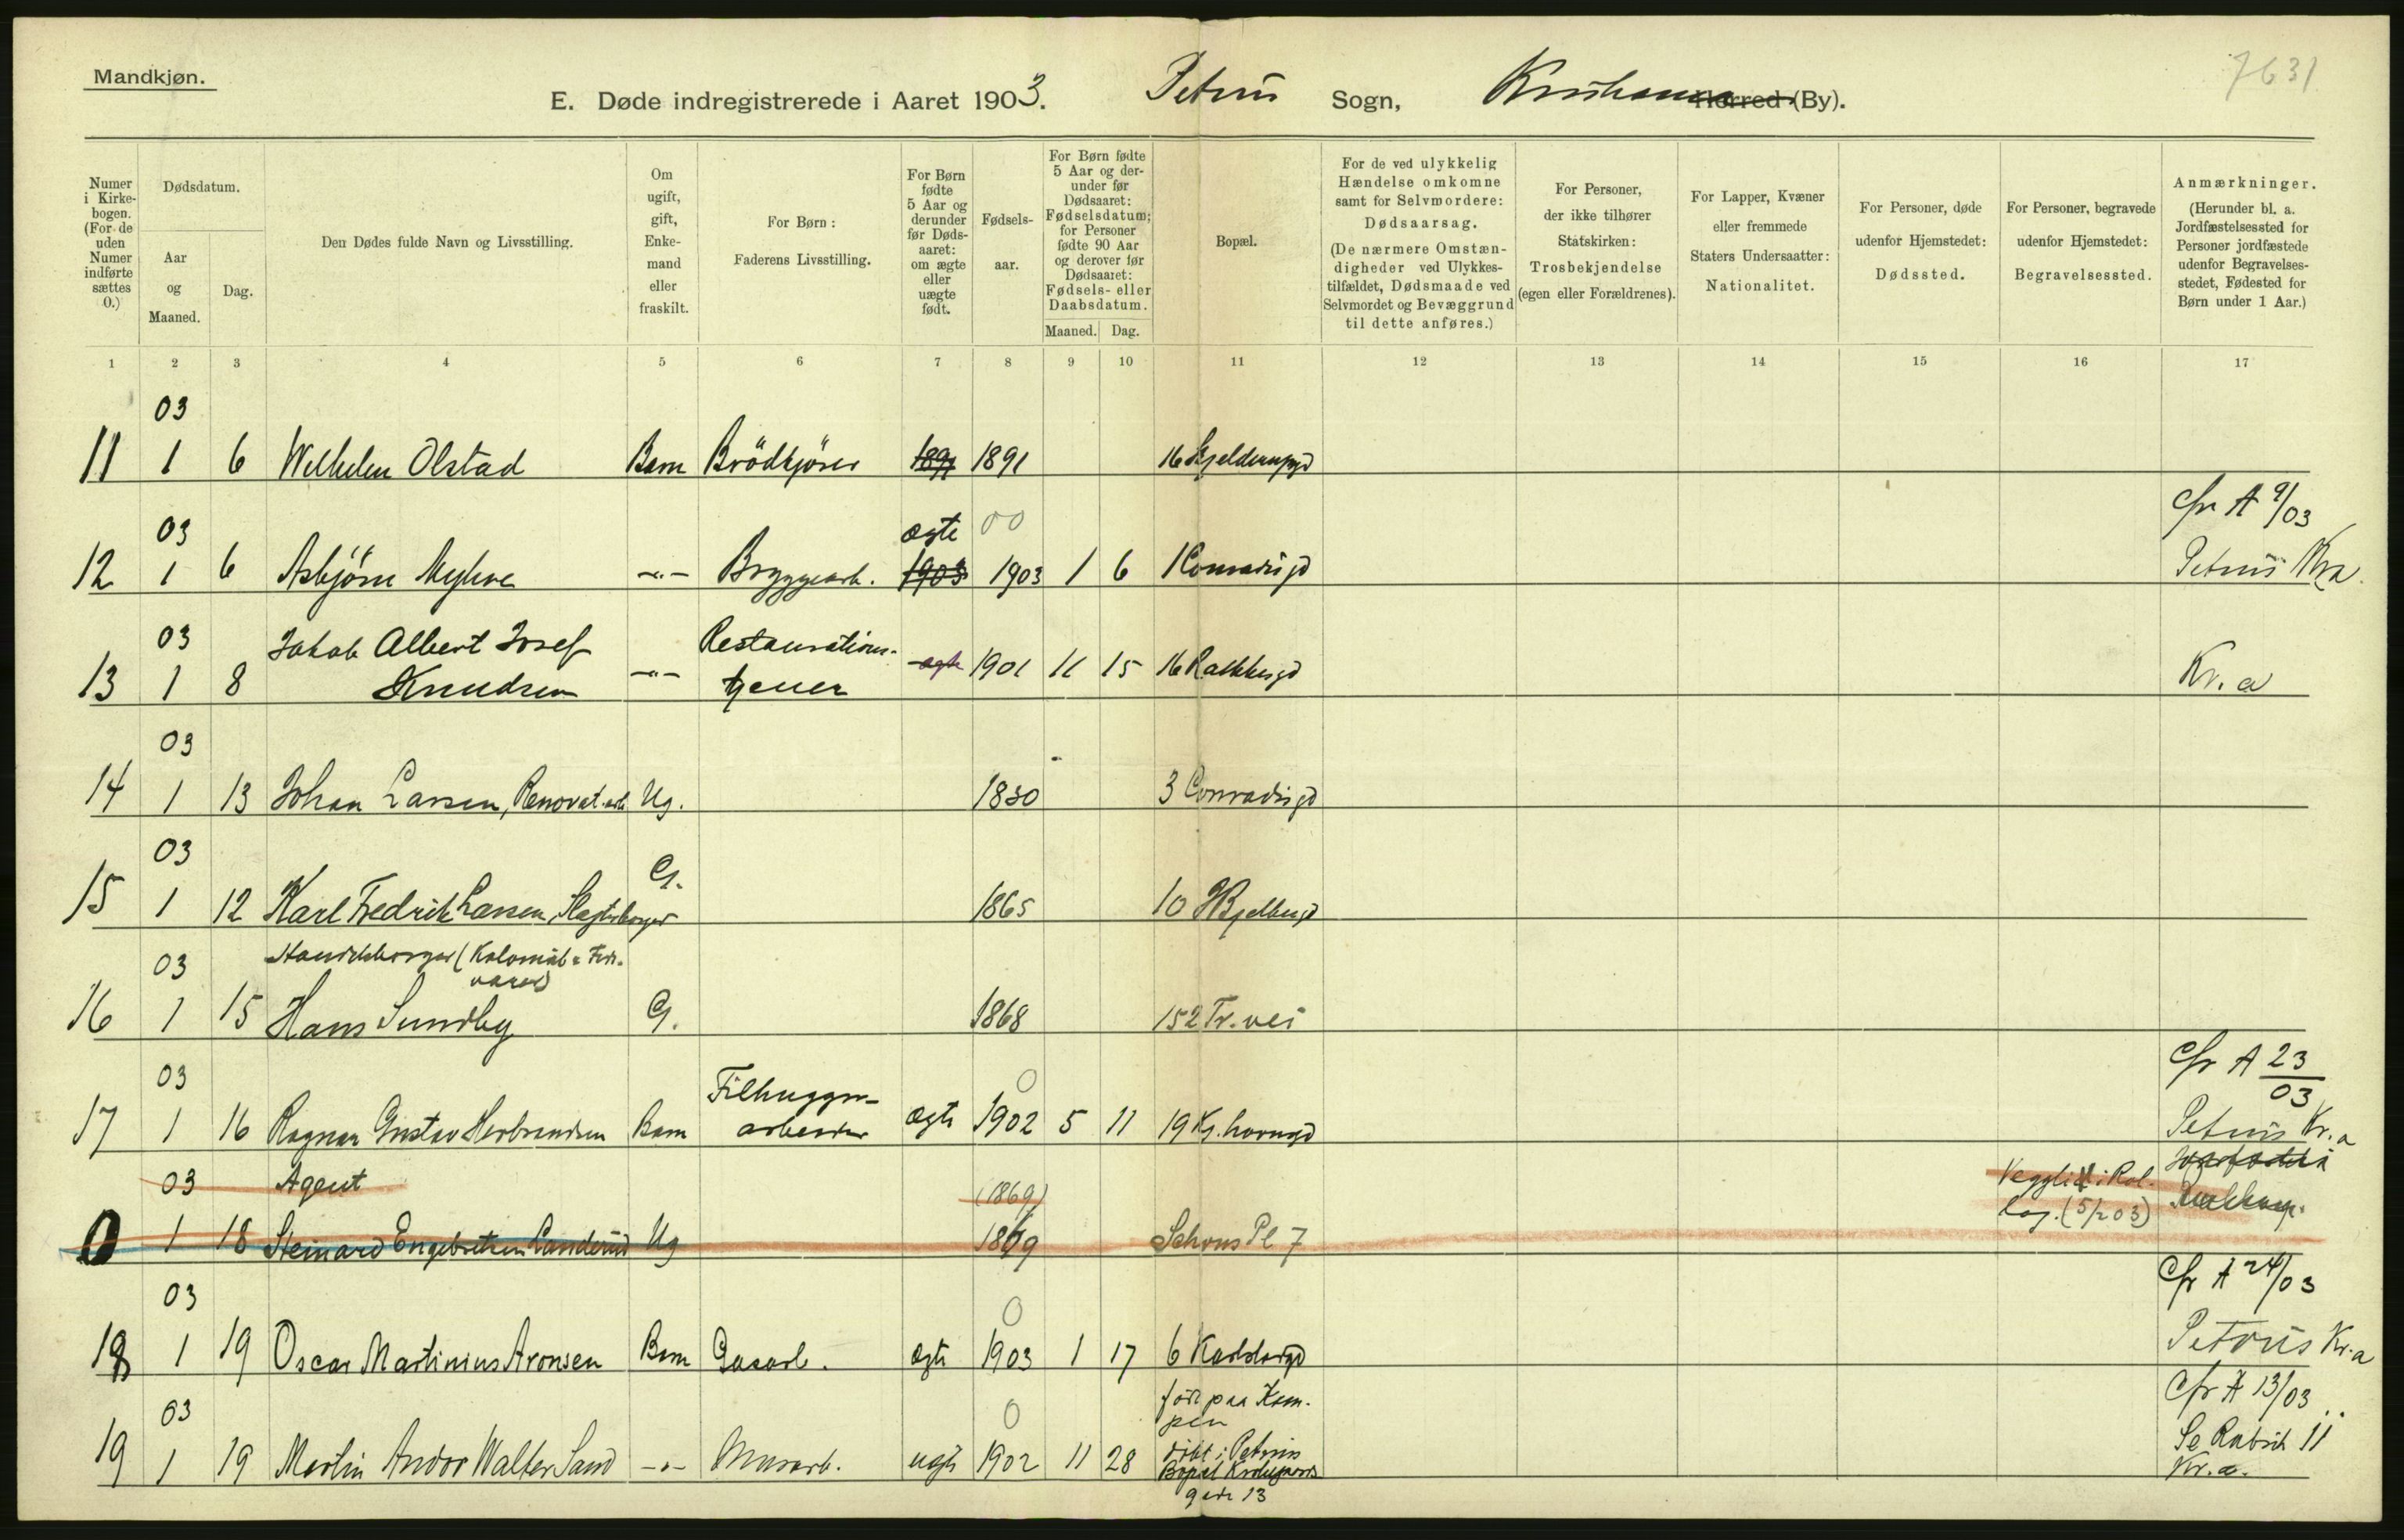 Mandkjøn.
7631
E. Døde indregistrerede i Aaret 1903. Petrus Sogn, Kristiania Herred (By).
Numer i Kirkebogen. (For de uden Numer indførte sættes 0.)
Dødsdatum.
Aar og Maaned.
Dag.
Den Dødes fulde Navn og Livsstilling.
Om ugift, gift, Enkemand eller fraskilt.
For Børn: Faderens Livsstilling.
For Børn fødte 5 Aar og derunder før Dødsaaret: om ægte eller uægte født.
Fødselsaar.
For Børn fødte 5 Aar og derunder før Dødsaaret: Fødselsdatum; for Personer fødte 90 Aar og derover før Dødsaaret: Fødsels- eller Daabsdatum.
Maaned. Dag.
Bopæl.
For de ved ulykkelig Hændelse omkomne samt for Selvmordere: Dødsaarsag. (De nærmere Omstændigheder ved Ulykkestilfældet, Dødsmaade ved Selvmordet og Bevæggrund til dette anføres.)
For Personer, der ikke tilhører Statskirken: Trosbekjendelse (egen eller Forældrenes).
For Lapper, Kvæner eller fremmede Staters Undersaatter: Nationalitet.
For Personer, døde udenfor Hjemstedet: Dødssted.
For Personer, begravede udenfor Hjemstedet: Begravelsessted.
Anmærkninger. (Herunder bl. a. Jordfæstelsessted for Personer jordfæstede udenfor Begravelsesstedet, Fødested for Børn under 1 Aar.)
1 2 3 4 5 6 7 8 9 10 11 12 13 14 15 16 17
03
11 1 6 Wilhelm Olstad Barn Brödkjörer 1891 1891 16 Gjelderupgd
cfr A 9/03
03 ægte 00
12 1 6 Asbjörn Myhre -"- Bryggearb. 1903 1903 1 6 1 Conradisgd Petrus Kra.
03 Jakob Albert Josef Restaurations-
13 1 8 Knudsen -"- tjener ægte 1901 11 15 16 Rathkesgd Kr.a
03
14 1 13 Johan Larsen, Renovat.arb. Ug. 1830 3 Conradisgd
03 G.
15 1 12 Karl Fredrik Larsen, Slagterborger 1865 10 HBjelkesgd
03 Handelsborger (Kolonial & Fede-
varer)
16 1 15 Hans Sundby G. 1868 152 Tr.vei
cfr A 23/03
03 Filhugger- 0
17 1 16 Ragnar Gustav Herbrandsen Barn arbeider ægte 1902 5 11 19 Kj.havngd Petrus Kr.a
03 Agent (1869) Veggli i Rol-
lag. (5/2 03)
0 1 18 Steinard Engebretsen Landerud Ug 1869 Schous Pl 7
cfr A 24/03
03 0
18 1 19 Oscar Martinius Aronsen Barn Gasarb. ægte 1903 1 17 6 Karlsborgd Petrus Kr.a
cfr A 13/03
03 0 födt paa Kam-
pen
19 1 19 Martin Andor Walter Sand -"- Murarb. uægte 1902 11 28 döbt i Petrus Se Rubrik 11
Bopæl Kr.a.
gade 13